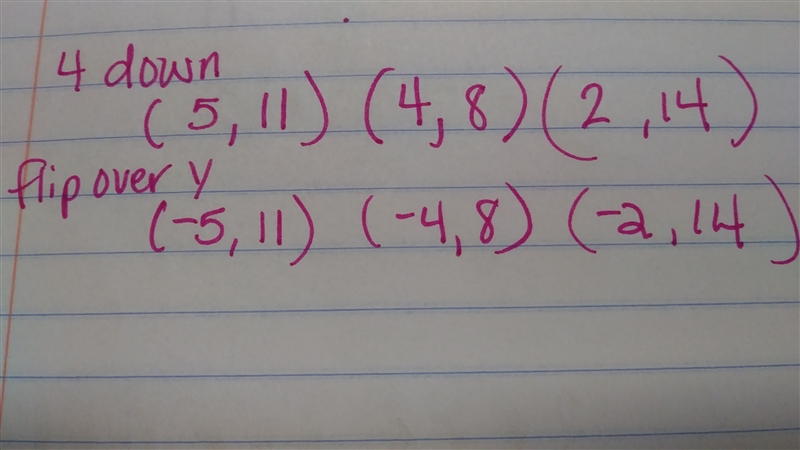 4 down
(5, 11) (4, 8) (2, 14)
flip over y
(-5, 11) (-4, 8) (-2, 14)